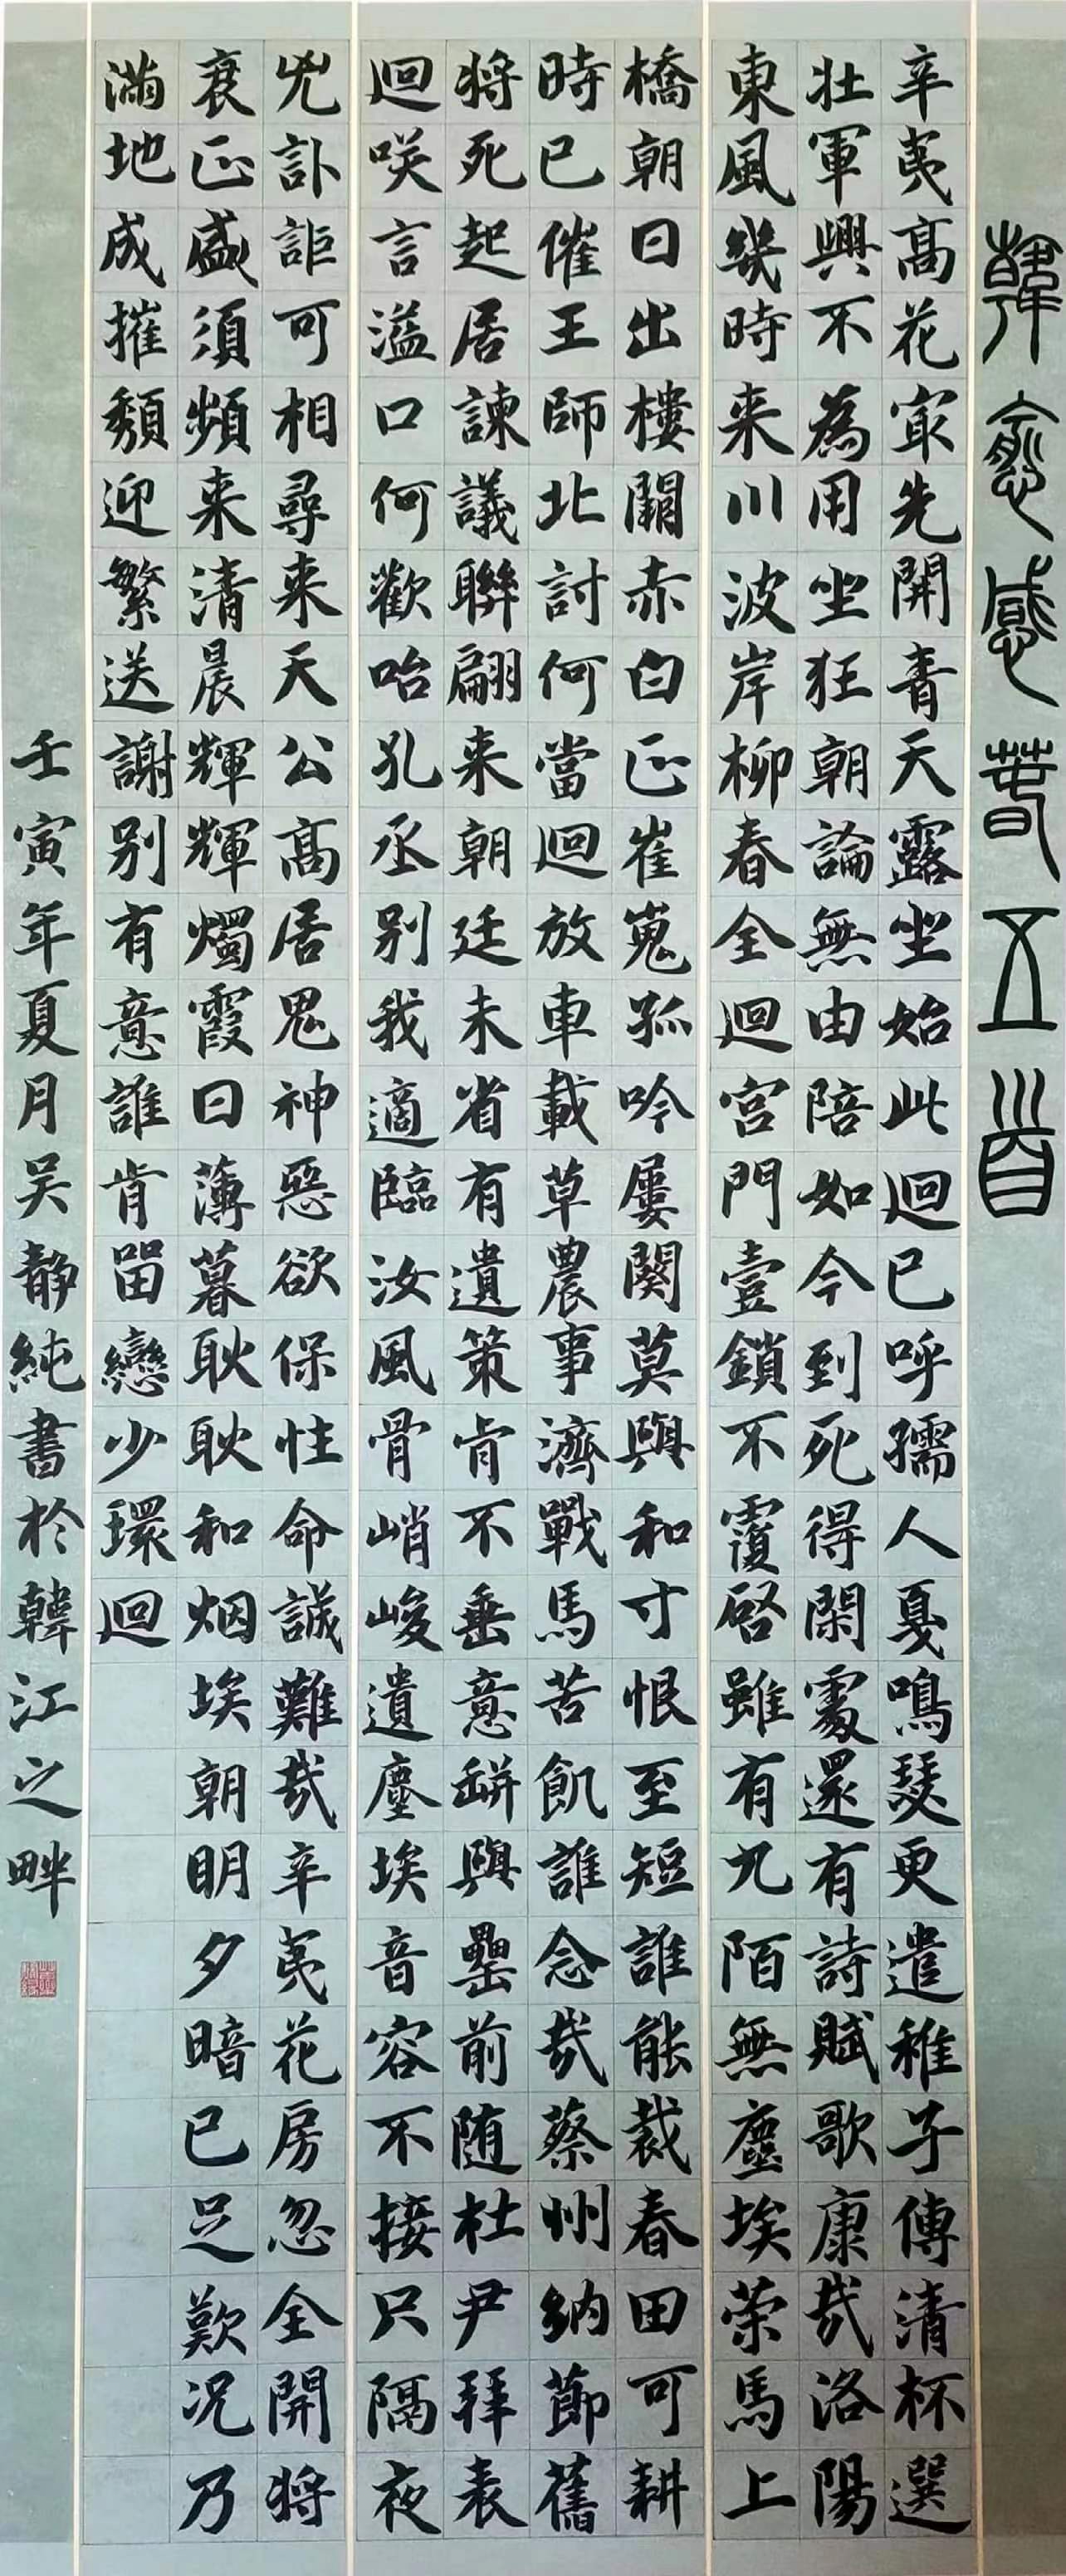 韓愈感春五首
辛夷高花最先開青天露坐始此迴已呼孺人戛鳴瑟更遣稚子傳清杯選
壯軍興不為用坐狂朝論無由陪如今到死得閑處還有詩賦歌康哉洛陽
東風幾時来川波岸柳春全迴宮門壹鎖不覆啓雖有九陌無塵埃荣馬上
橋朝日出樓闕赤白正崔嵬孤吟屢闋莫與和寸恨至短誰能裁春田可耕
時已催王師北討何當迴放車載草農事濟戰馬苦飢誰念哉蔡州納節舊
将死起居諫議聯翩来朝廷未省有遺策肯不垂意缾與罍前随杜尹拜表
迴咲言溢口何歡咍孔丞别我適臨汝風骨峭峻遺塵埃音容不接只隔夜
兇訃詎可相尋来天公高居鬼神惡欲保性命誠難哉辛夷花房忽全開将
衰正盛須頻来清晨輝輝燭霞日薄暮耿耿和烟埃朝明夕暗已足歎况乃
滿地成摧頹迎繁送謝别有意誰肯留戀少環迴
壬寅年夏月吴静純書於韓江之畔